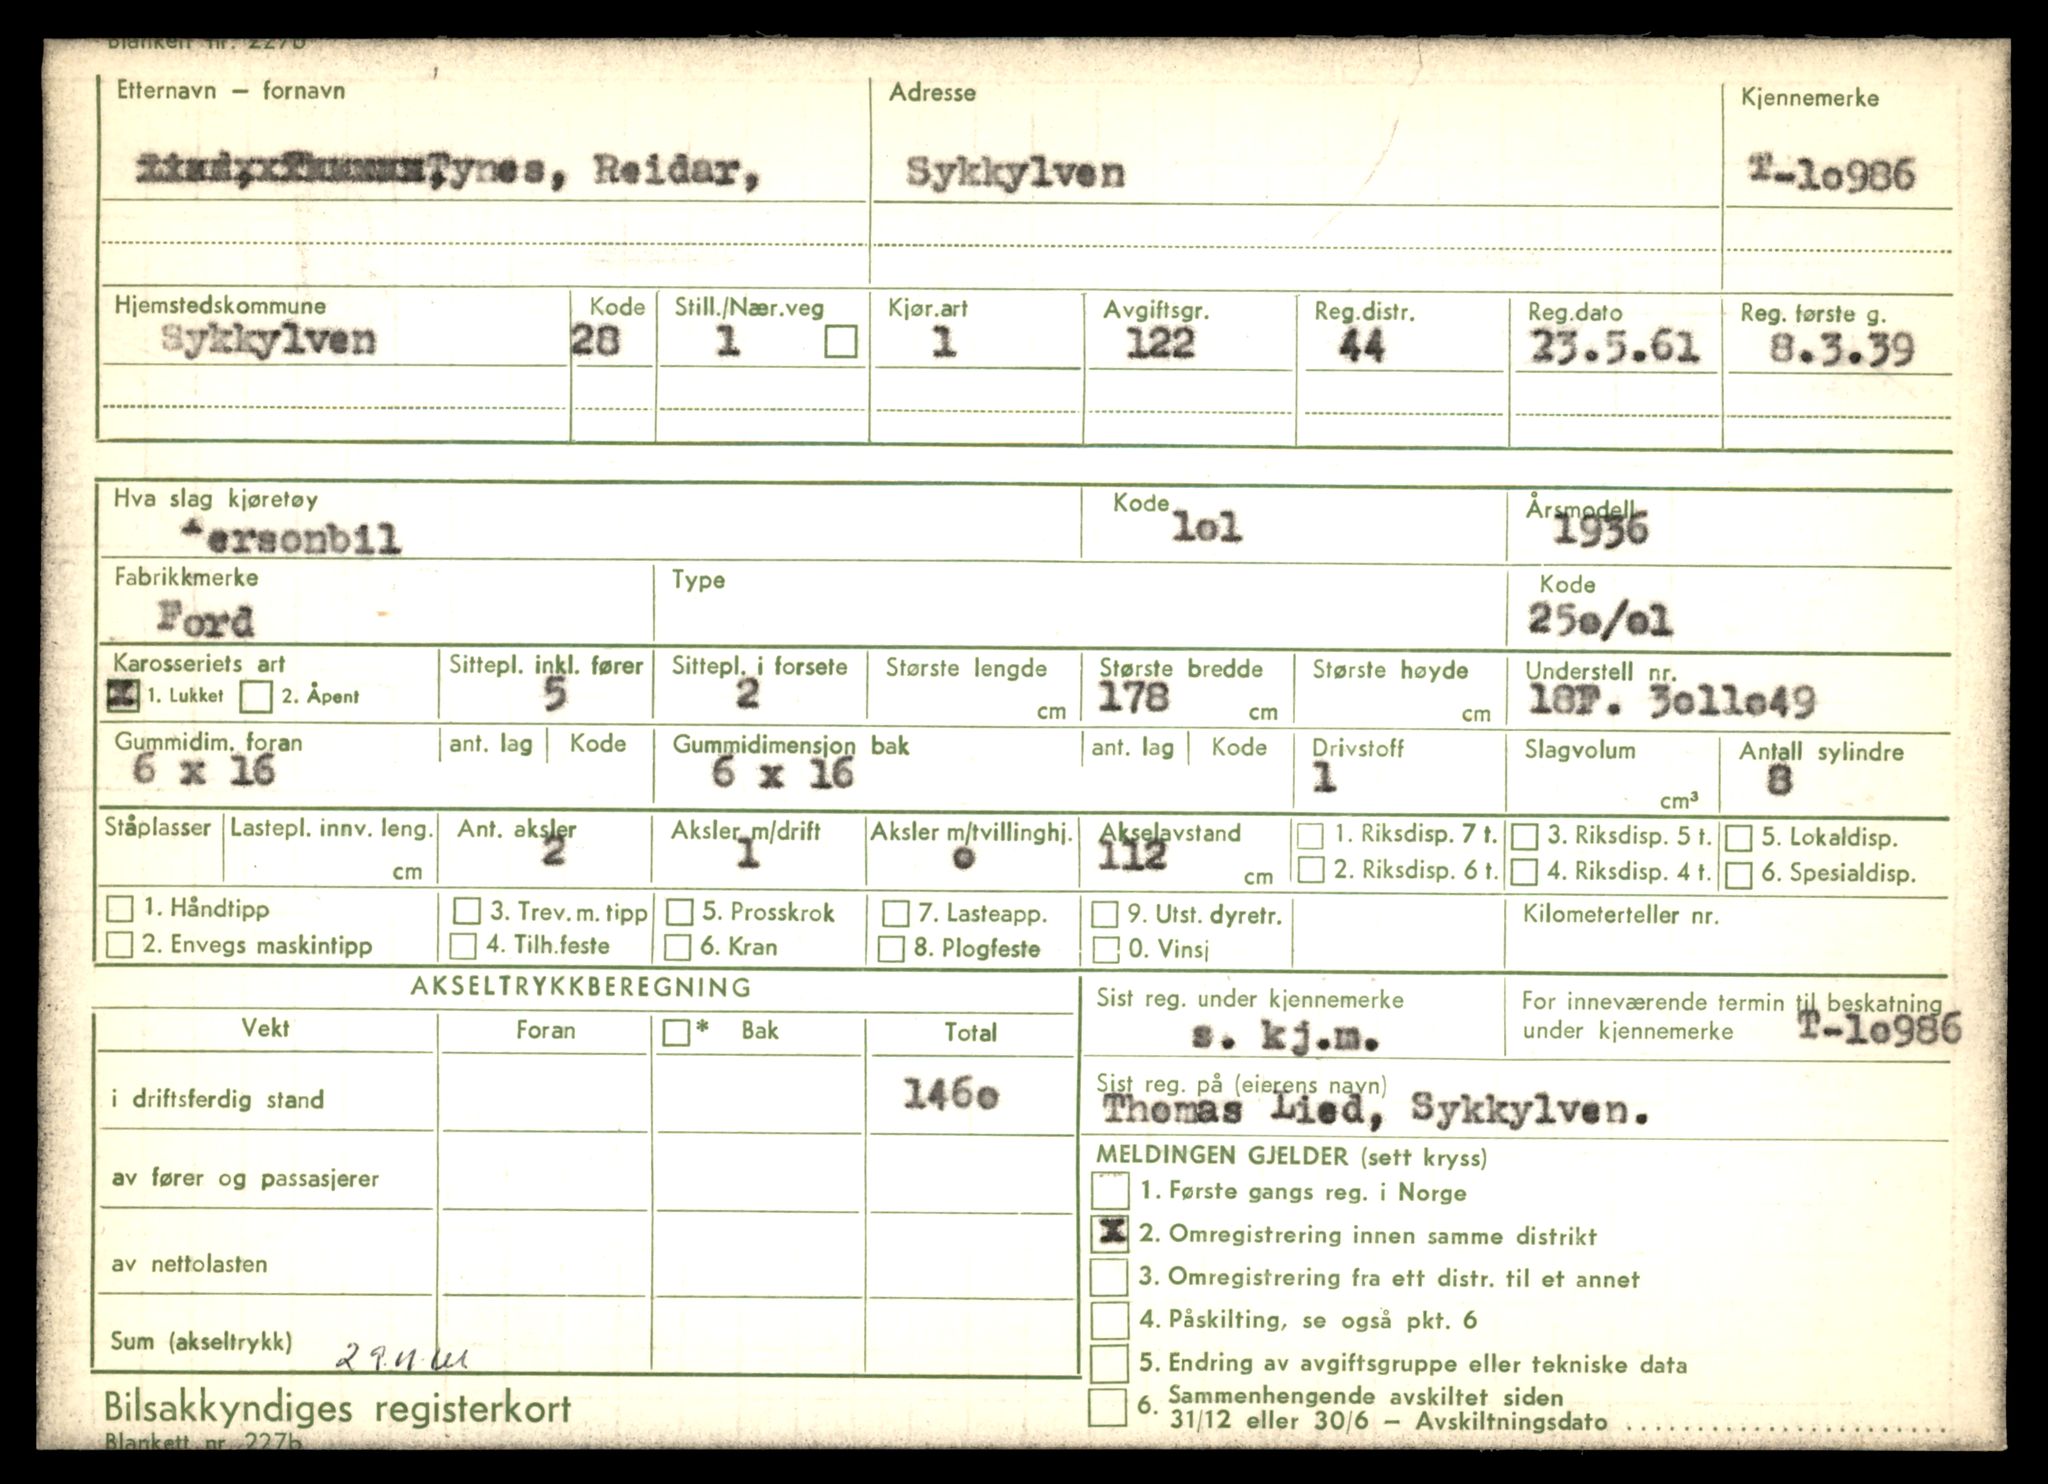 Blankett nr. 227b
Etternavn – fornavn Adresse Kjennemerke
Tynes, Reidar, Sykkylven T-lo986
Hjemstedskommune Kode Still./Nær.veg Kjør.art Avgiftsgr. Reg.distr. Reg.dato Reg. første g.
Sykkylven 28 1 1 122 44 23.5.61 8.3.39
Hva slag kjøretøy Kode Årsmodell
ersonbil lol 1936
Fabrikkmerke Type Kode
Ford 25o/ol
Karosseriets art Sittepl. inkl. fører Sittepl. i forsete Største lengde Største bredde Største høyde Understell nr.
X 1. Lukket 2. Åpent 5 2 cm 178 cm cm 18F. 3ollo49
Gummidim. foran ant. lag Kode Gummidimensjon bak ant. lag Kode Drivstoff Slagvolum Antall sylindre
6 x 16 6 x 16 1 cm³ 8
Ståplasser Lastepl. innv. leng. Ant. aksler Aksler m/drift Aksler m/tvillinghj. Akselavstand 1. Riksdisp. 7 t. 3. Riksdisp. 5 t. 5. Lokaldisp.
cm 2 1 o 112 cm 2. Riksdisp. 6 t. 4. Riksdisp. 4 t. 6. Spesialdisp.
1. Håndtipp 3. Trev. m. tipp 5. Prosskrok 7. Lasteapp. 9. Utst. dyretr. Kilometerteller nr.
2. Envegs maskintipp 4. Tilh.feste 6. Kran 8. Plogfeste 0. Vinsj
AKSELTRYKKBEREGNING Sist reg. under kjennemerke For inneværende termin til beskatning
Vekt Foran * Bak Total s. kj.m. under kjennemerke T-lo986
i driftsferdig stand 146o Sist reg. på (eierens navn)
Thomas Lied, Sykkylven.
MELDINGEN GJELDER (sett kryss)
av fører og passasjerer 1. Første gangs reg. i Norge
X 2. Omregistrering innen samme distrikt
av nettolasten 3. Omregistrering fra ett distr. til et annet
4. Påskilting, se også pkt. 6
Sum (akseltrykk) 5. Endring av avgiftsgruppe eller tekniske data
Bilsakkyndiges registerkort 6. Sammenhengende avskiltet siden
31/12 eller 30/6 – Avskiltningsdato ....................
Blankett nr. 227b